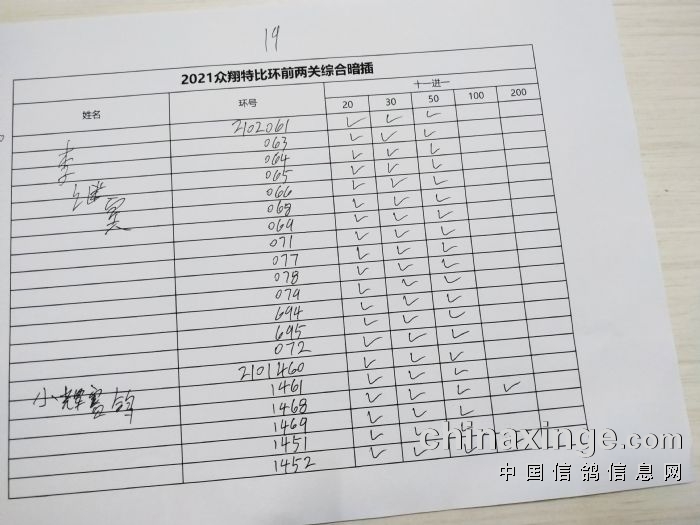 19
2021众翔特比环前两关综合暗插
姓名 环号 十一进一
20 30 50 100 200
2102061 ✓ ✓ ✓
063 ✓ ✓ ✓
064 ✓ ✓ ✓
065 ✓ ✓ ✓
066 ✓ ✓ ✓
068 ✓ ✓ ✓
069 ✓ ✓ ✓
071 ✓ ✓ ✓
077 ✓ ✓ ✓
078 ✓ ✓ ✓
079 ✓ ✓ ✓
694 ✓ ✓ ✓
695 ✓ ✓ ✓
072 ✓ ✓ ✓
2101460 ✓ ✓ ✓
小辉赛鸽 1461 ✓ ✓ ✓ ✓
1468 ✓ ✓ ✓
1469 ✓ ✓ ✓
1451 ✓ ✓ ✓
1452 ✓ ✓ ✓
chinaxinge.com
中国信鸽信息网